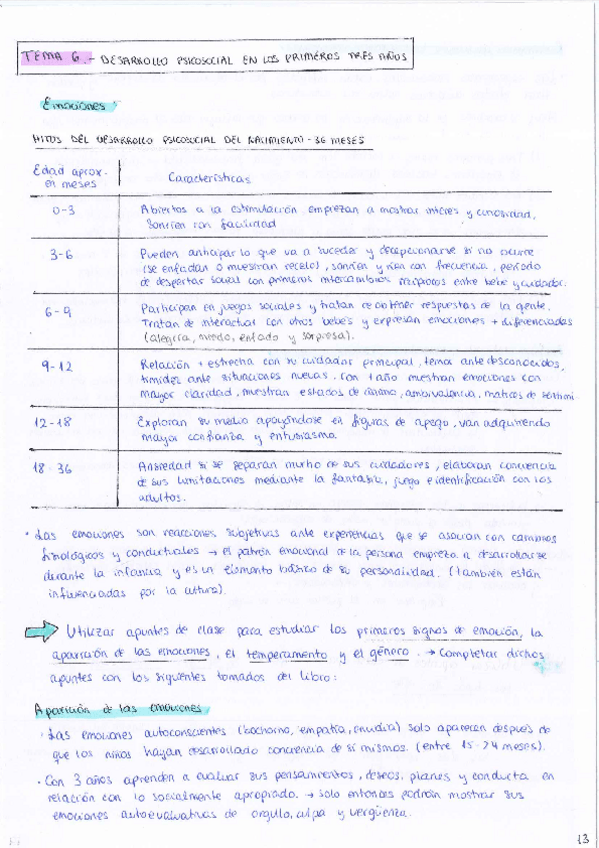 TEMA 6.- DESARROLLO PSICOSOCIAL EN LOS PRIMEROS TRES AÑOS
Emociones
HITOS DEL DESARROLLO PSICOSOCIAL DEL NACIMIENTO - 36 MESES
Edad aprox. en meses | Características
0-3 | Abiertos a la estimulación empiezan a mostrar interés y curiosidad,
sonríen con facilidad
3-6 | Pueden anticipar lo que va a suceder y decepcionarse si no ocurre
(se enfadan o muestran recelo), sonríen y ríen con frecuencia, periodo
de despertar social con primeros intercambios recíprocos entre bebé y cuidador.
6-9 | Participan en juegos sociales y tratan de obtener respuestas de la gente.
Tratan de interactuar con otros bebés y expresan emociones + diferenciadas
(alegría, miedo, enfado y sorpresa).
9-12 | Relación + estrecha con su cuidador principal, temor ante desconocidos,
timidez ante situaciones nuevas. Con 1 año muestran emociones con
mayor claridad, muestran estados de ánimo, ambivalencia, matices de sentimi.
12-18 | Exploran su medio apoyándose en figuras de apego, van adquiriendo
mayor confianza y entusiasmo.
18-36 | Ansiedad si se separan mucho de sus cuidadores, elaboran conciencia
de sus limitaciones mediante la fantasía, juego e identificación con los
adultos.
· Las emociones son reacciones subjetivas ante experiencias que se asocian con cambios
fisiológicos y conductuales → el patrón emocional de la persona empieza a desarrollarse
durante la infancia y es un elemento básico de su personalidad. (también están
influenciadas por la cultura).
Utilizar apuntes de clase para estudiar los primeros signos de emoción, la
aparición de las emociones, el temperamento y el género. → Completar dichos
apuntes con los siguientes tomados del libro:
Aparición de las emociones
· Las emociones autoconscientes (bochorno, empatía, envidia) solo aparecen después de
que los niños hayan desarrollado conciencia de sí mismos. (entre 15-24 meses).
· Con 3 años aprenden a evaluar sus pensamientos, deseos, planes y conducta en
relación con lo socialmente apropiado. → solo entonces podrán mostrar sus
emociones autoevaluativas de orgullo, culpa y vergüenza.
13